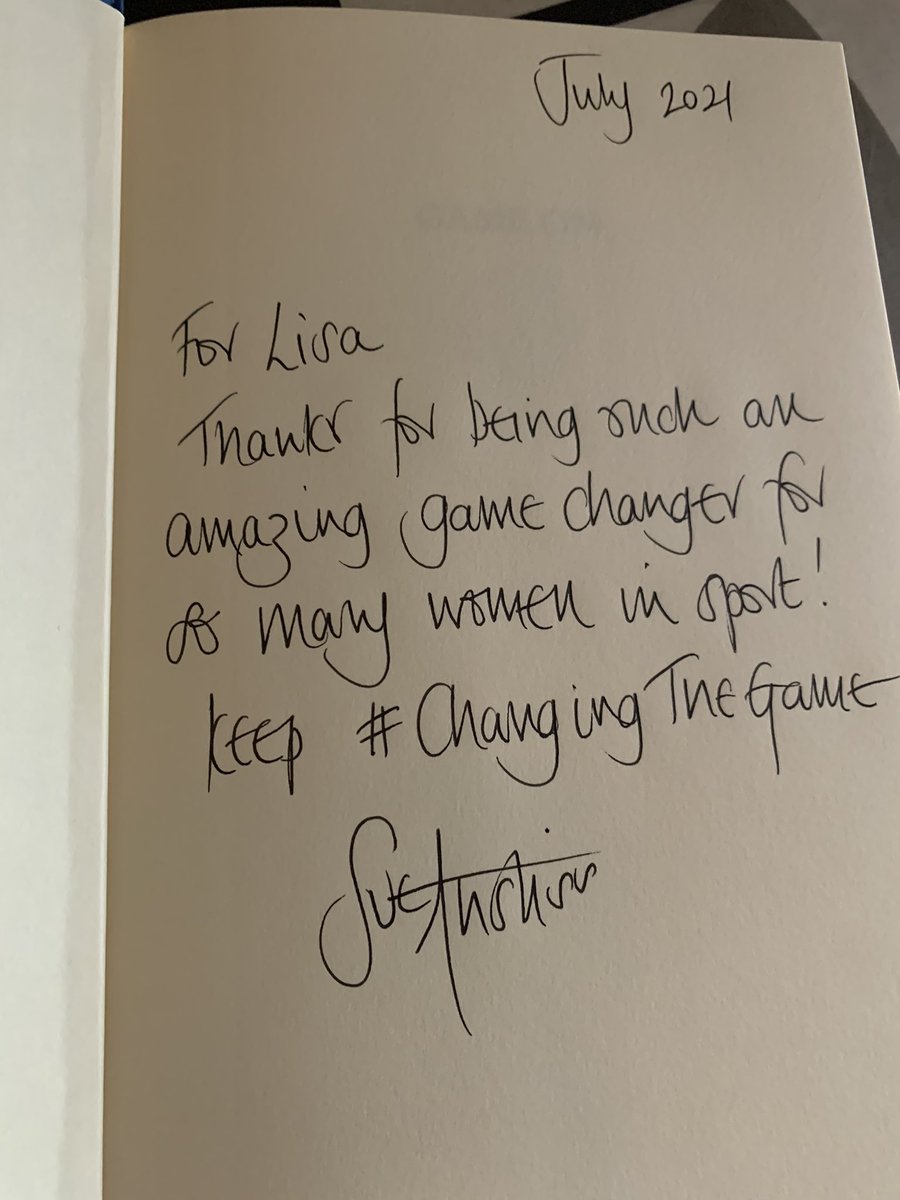 July 2021
GAME ON
For Lisa
Thanks for being such an
amazing game changer for
so many women in sport!
Keep #ChangingTheGame
Sue Anstiss